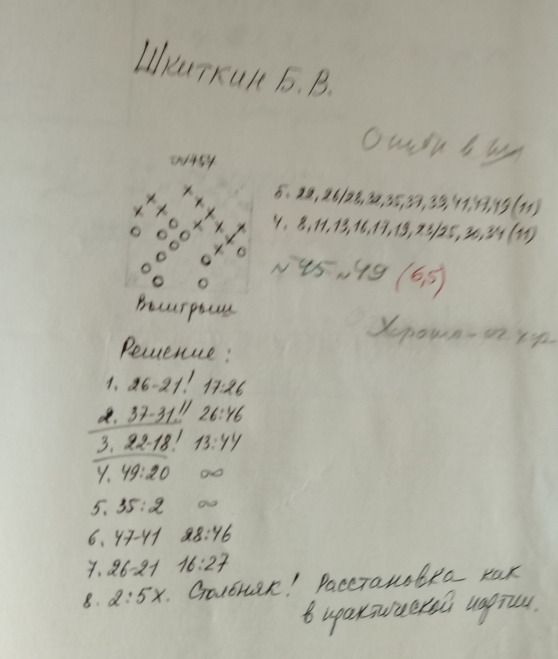 Шкиткин Б. В.
Б. 22, 26/28, 32, 35, 37, 39, 41, 47, 49 (11)
Ч. 8, 11, 13, 16, 17, 19, 23/25, 30, 34 (11)
№45 №49 (6,5)
Выигрыш
Решение:
1. 26-21! 17:26
2. 37-31!! 26:46
3. 22-18! 13:44
4. 49:20 ∞
5. 35:2 ∞
6. 47-41 28:46
7. 26-21 16:27
8. 2:5X. Столбняк! Расстановка как
в практической партии.